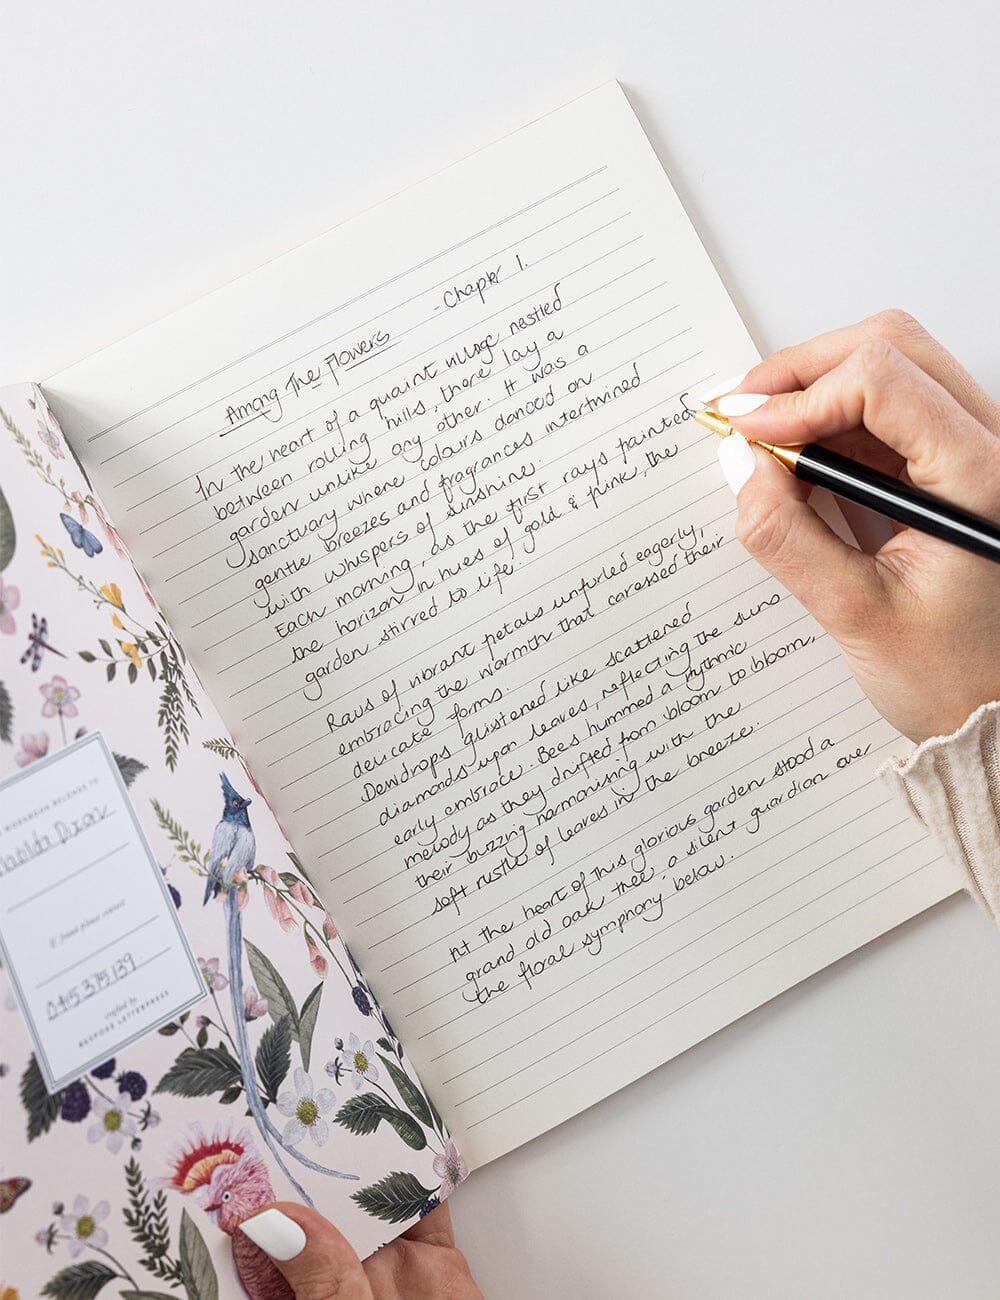 Among The Flowers - Chapter 1.
In the heart of a quaint village nestled
between rolling hills, there lay a
garden unlike any other. It was a
sanctuary where colours danced on
gentle breezes and fragrances intertwined
with whispers of sunshine.
Each morning, as the first rays painted
the horizon in hues of gold & pink, the
garden stirred to life.
Raus of vibrant petals unfurled eagerly,
embracing the warmth that caressed their
delicate forms.
Dewdrops glistened like scattered
diamonds upon leaves, reflecting the suns
early embrace. Bees hummed a rythmic
melody as they drifted from bloom to bloom,
their buzzing harmonising with the
soft rustle of leaves in the breeze.
At the heart of this glorious garden stood a
grand old oak tree, a silent guardian over
the floral symphony below.
BELONGS TO:
Dixon
If found please contact
0415 375 139
crafted by
BESPOKE LETTERPRESS